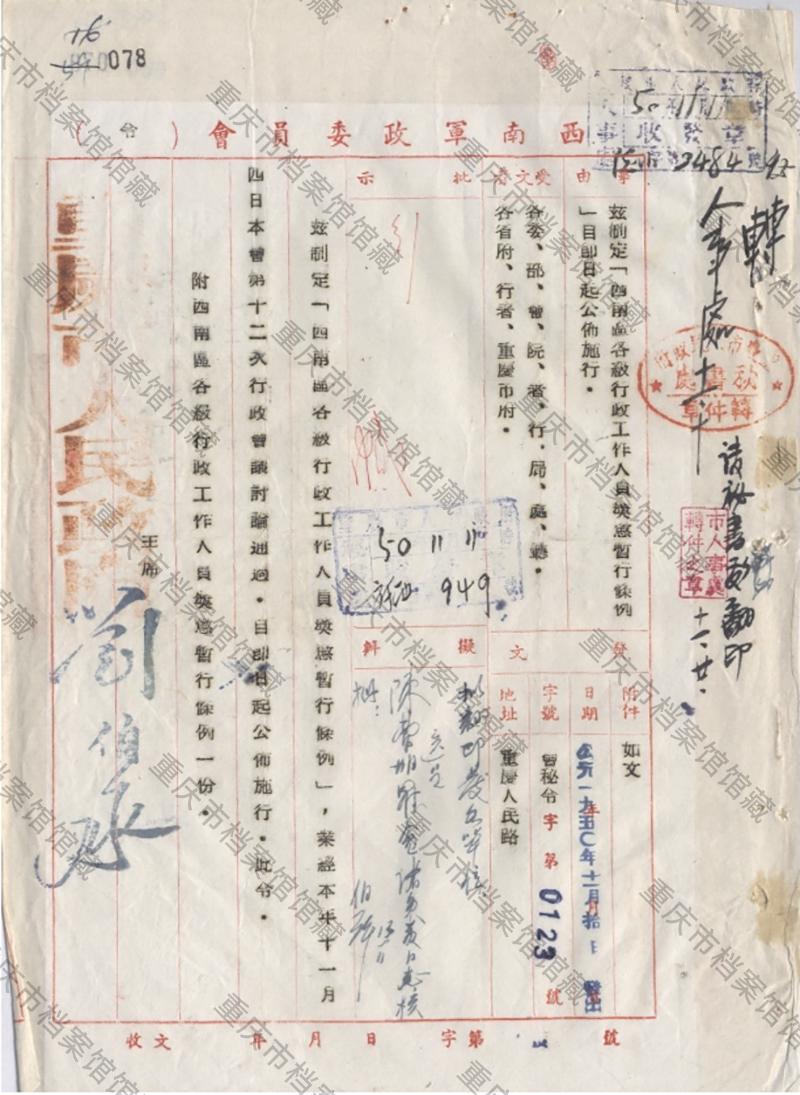 078
西南軍政委員會（令）
50 11 11
收發章
2484
轉
人事處
請秘書處翻印
十一、廿、
秘書處
轉件章
市人事處
轉件之章
事由
茲制定「西南區各級行政工作人員獎懲暫行條例
」自即日起公佈施行。
受文者
各委、部、會、院、署、行、局、處、
各省府、行署、重慶市府。
批示
發文
附件
如文
日期
公元一九五〇年十一月拾日發出
字號
會秘令字第0123號
地址
重慶人民路
擬辦
茲制定「西南區各級行政工作人員獎懲暫行條例」，業經本年十一月
四日本會第十二次行政會議討論通過。自即日起公佈施行。此令。
附西南區各級行政工作人員獎懲暫行條例一份。
50 11 11
949
主席
劉伯承
收文 年 月 日 字第 號
重庆市档案馆馆藏